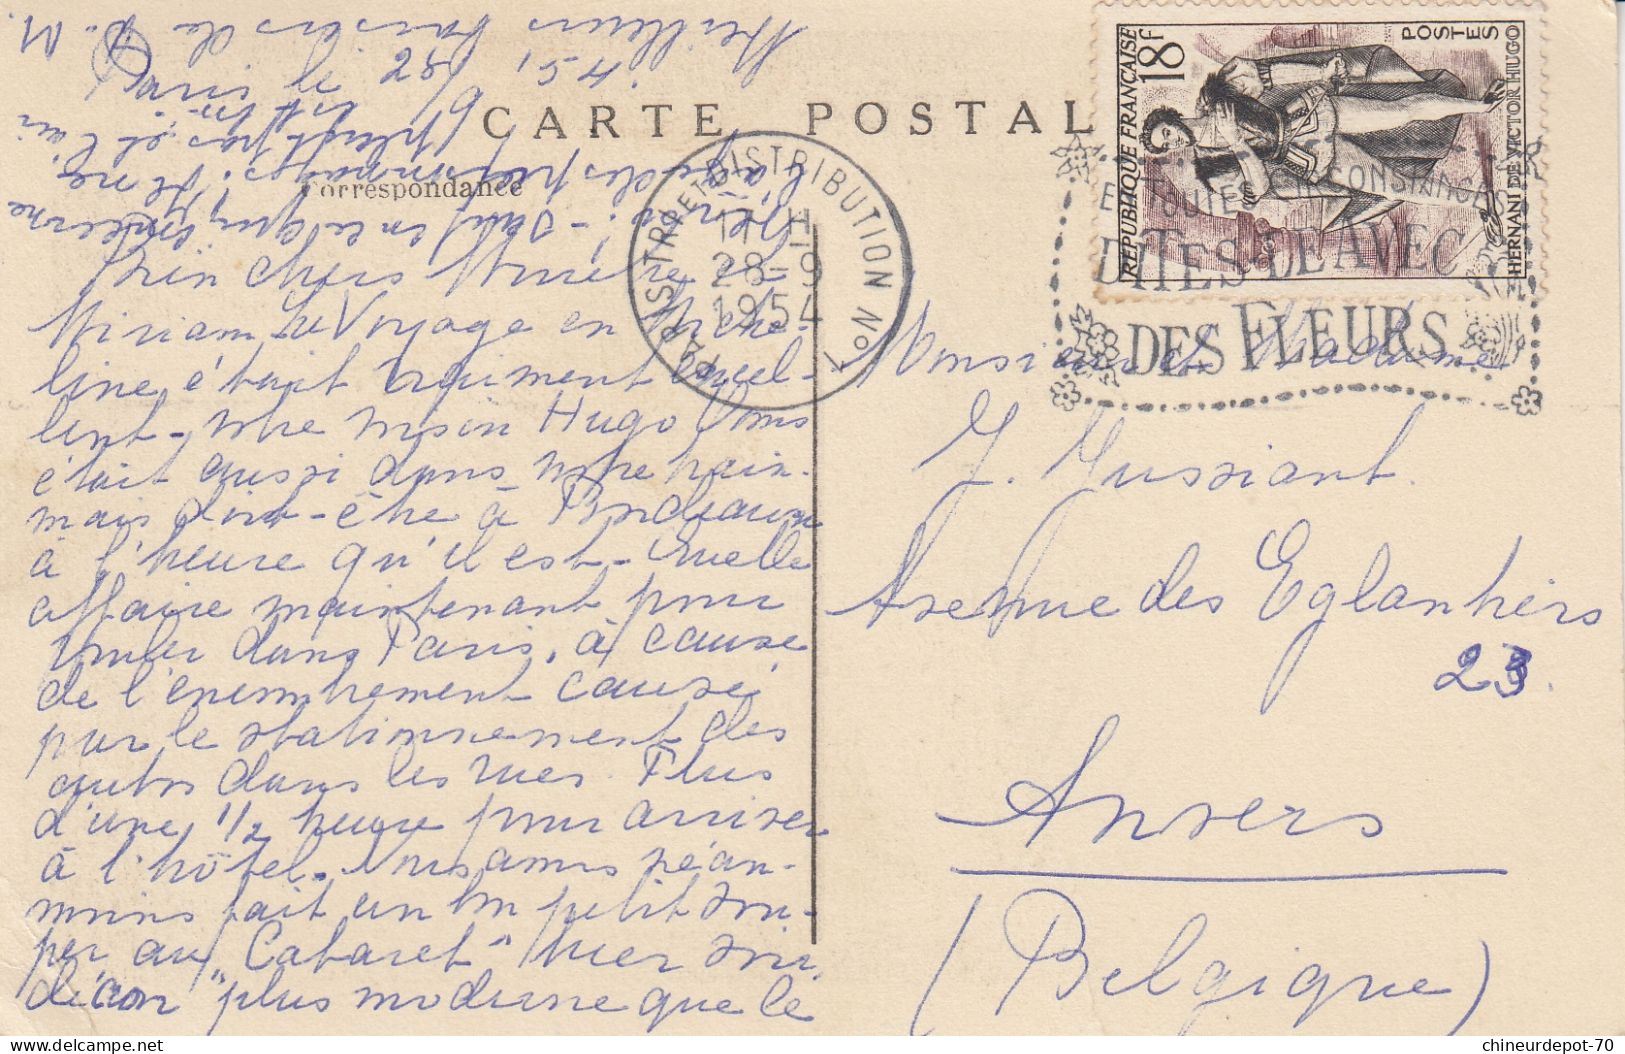 CARTE POSTAL
Correspondance
Bien chers Mireille et
Miriam, Le Voyage en Miche-
line était vraiment excel-
lent - notre voisin Hugo
était aussi dans notre train
mais peut-être à Bordeaux
à l'heure qu'il est - Quelle
affaire maintenant pour
rouler dans Paris, à cause
de l'encombrement causé
par le stationnement des
autos dans les rues. Plus
d'une 1/2 heure pour arriver
à l'hôtel. Nous avons néan-
moins fait un bon petit sou-
per au "Cabaret" hier soir,
décor plus moderne que le
Meilleurs baisers de
PARIS TRI et DISTRIBUTION N° 1
17 H
28-9
1954
REPUBLIQUE FRANÇAISE
18F
POSTES
HERNANI DE VICTOR HUGO
EN TOUTES CIRCONSTANCES
DITES-LE AVEC
DES FLEURS
Monsieur et Madame
J. Jussiant.
Avenue des Eglantiers
23.
Anvers
(Belgique)
chineurdepot-70